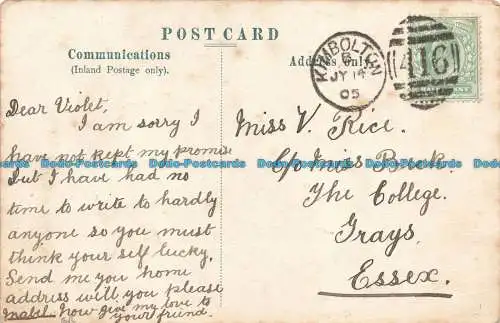 POST CARD
Communications
(Inland Postage only).
Address Only.
KIMBOLTON
B
JY 14
05
416
Dear Violet,
I am sorry I
have not kept my promise
but I have had no
time to write to hardly
anyone so you must
think your self lucky.
Send me you home
address will you please
Mabel. now give my love to
your friend.
Miss V. Rice.
C/o Miss Beck.
The College.
Grays.
Essex.
Dodo-Postcards Dodo-Postcards Dodo-Postcards Dodo-Postcards Dodo-Postcards